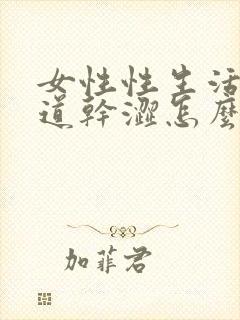 女性性生活
道幹澀怎麼
加菲君